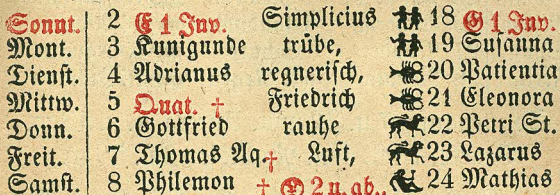 Sonnt. 2 E 1 Inv. Simplicius 18 G 1 Inv.
Mont. 3 Kunigunde trübe, 19 Susanna
Dienst. 4 Adrianus regnerisch, 20 Patientia
Mittw. 5 Quat. † Friedrich 21 Eleonora
Donn. 6 Gottfried rauhe 22 Petri St.
Freit. 7 Thomas Aq. † Luft, 23 Lazarus
Samst. 8 Philemon † 2 u. ab., 24 Mathias